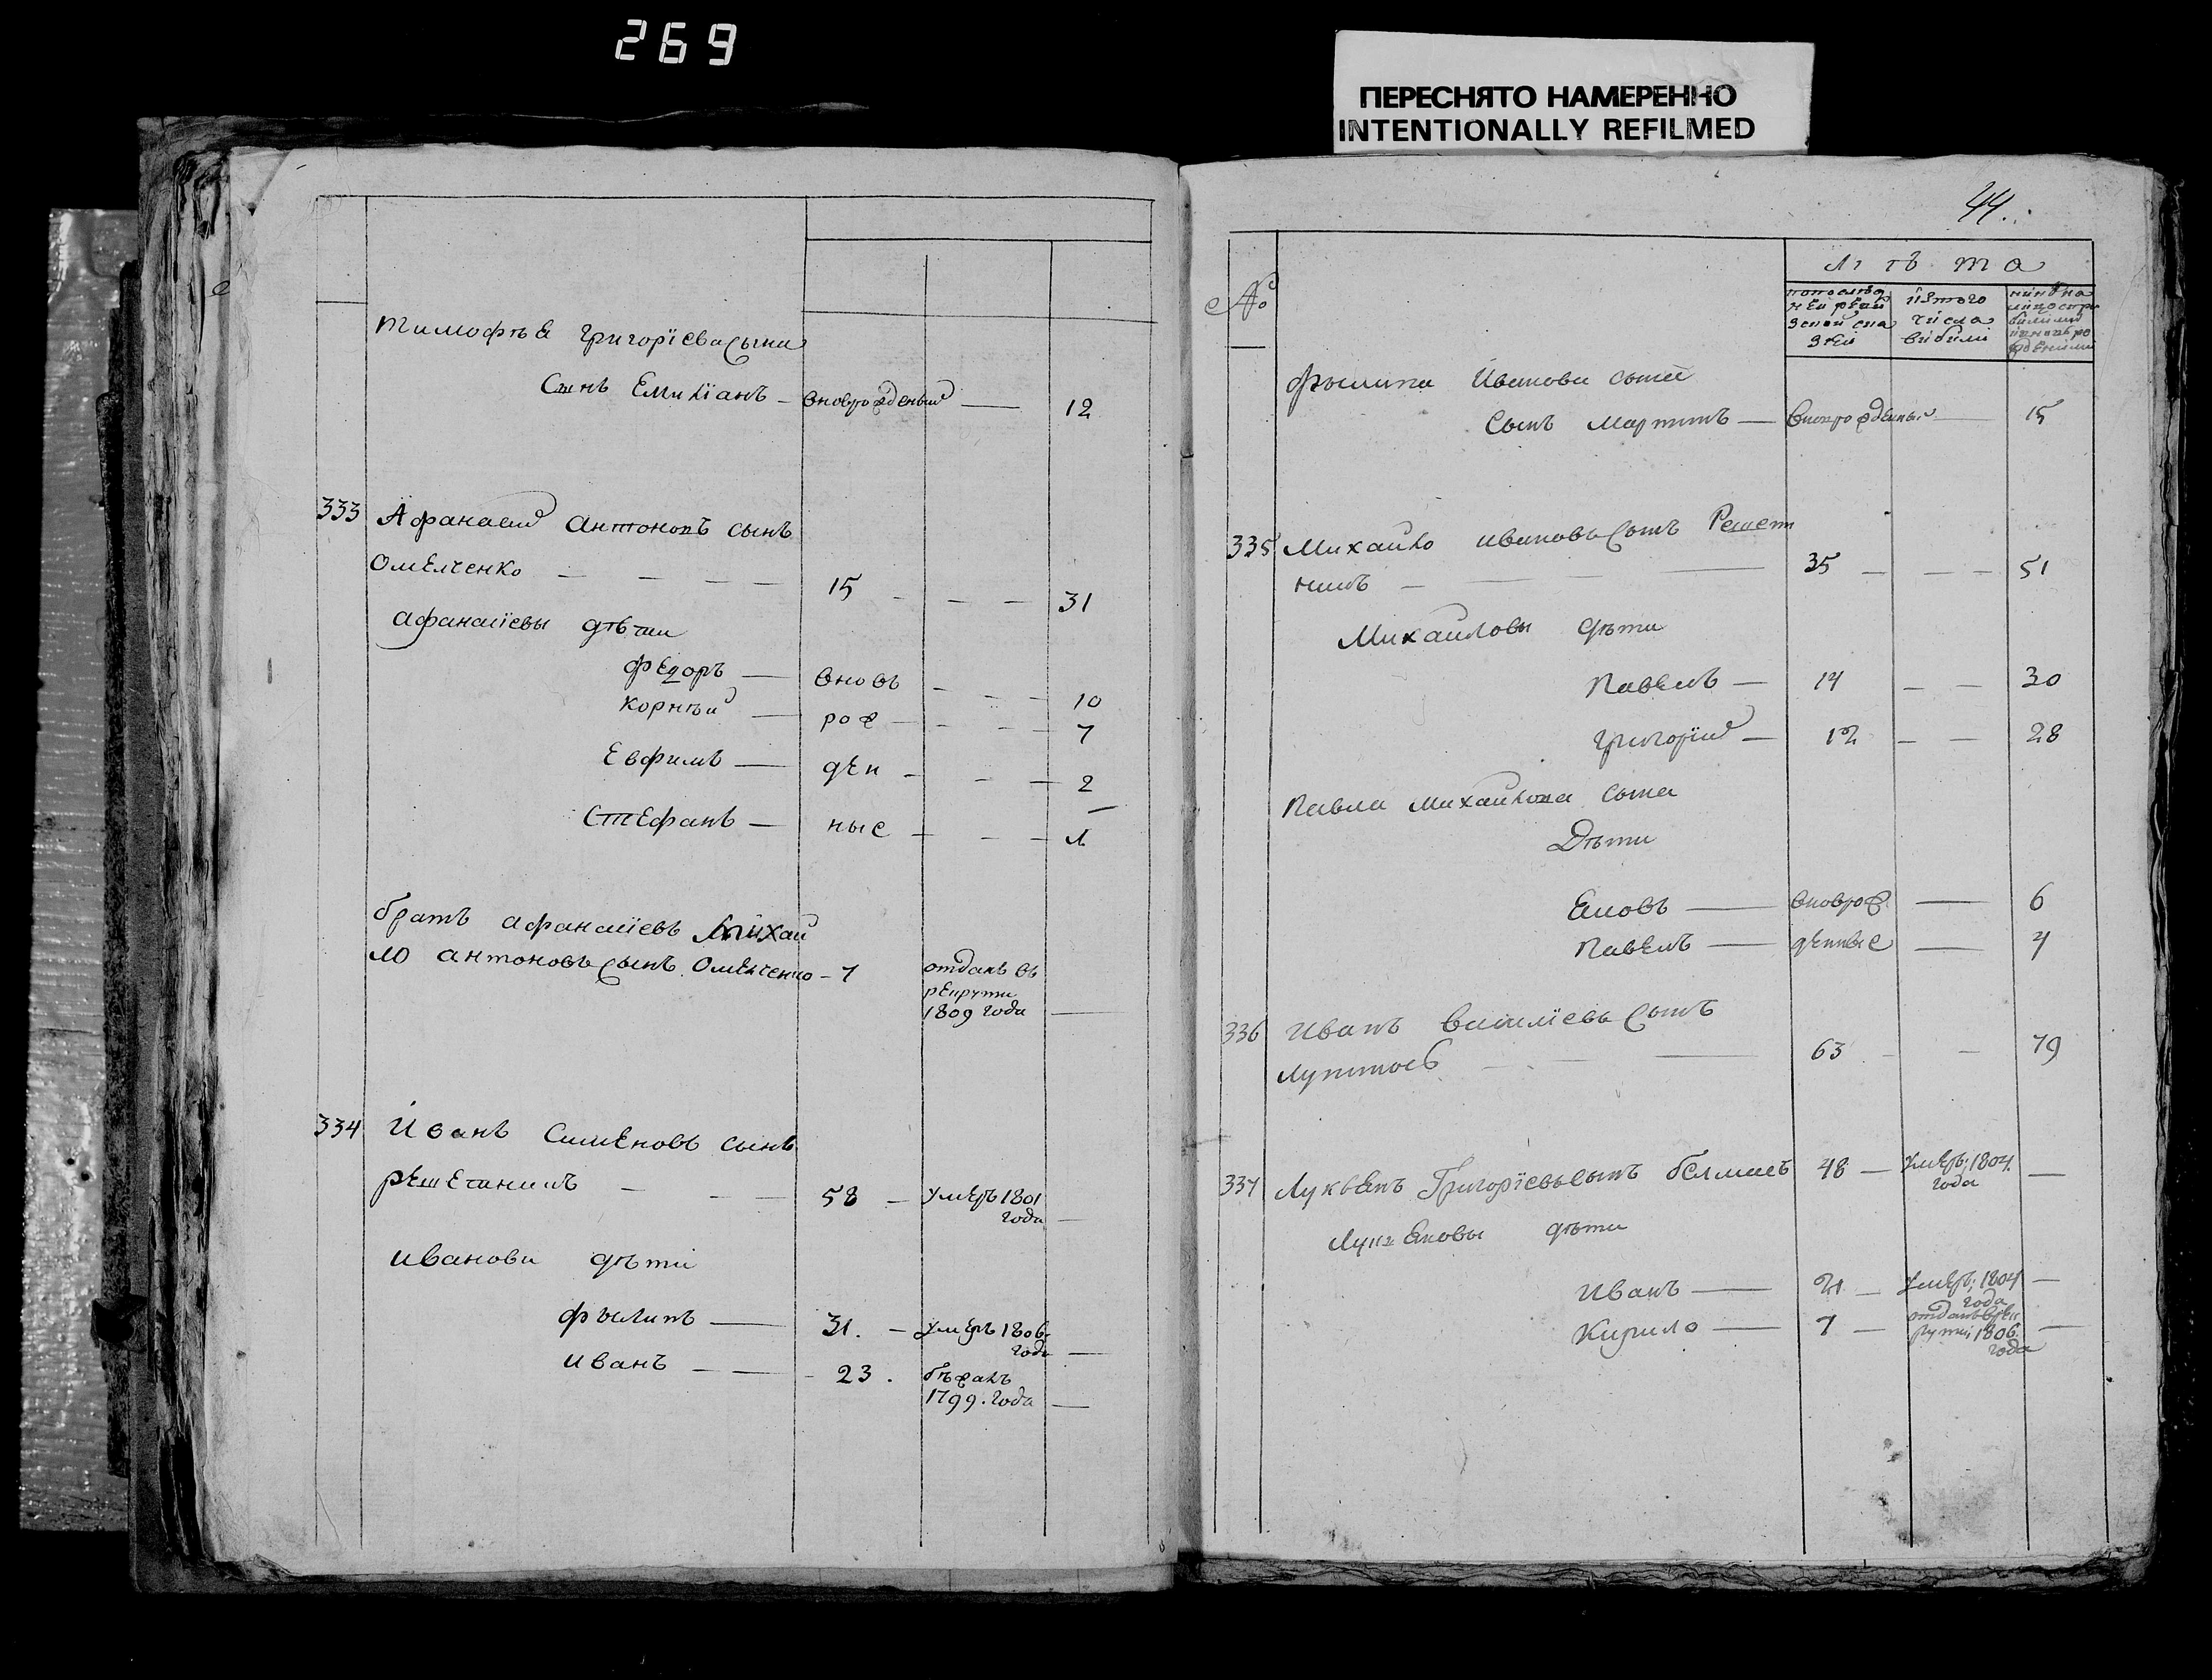 269
ПЕРЕСНЯТО НАМЕРЕННО
INTENTIONALLY REFILMED
Тимофѣя Григорїева сына
Сынъ Емилїанъ — вноврожденый — 12
333 Афанасий Антоновъ сынъ
Омелченко — — — — 15 — — — 31
Афанасїевы дѣти
Федоръ — вновь — — — 10
Корнѣй — рож — — — 7
Евфимъ — ден — — — 2
Стефанъ — ные — — — 1/л
братъ Афанасїевъ Михай
ло Антоновъ сынъ Омелченко — 7 отданъ въ
рекрути
1809 года —
334 Иванъ Сименовъ сынъ
Решетникъ — — — 58 — умеръ 1801
года —
Иванови дѣти
Филипъ — 31. — умеръ 1806.
года —
Иванъ — — 23. бѣжалъ
1799. года —
44.
№ лѣта
по послѣд
ней реви
зской ска
зкеи
изтого
числа
выбыли
нинѣ на
лицо
Филипа Иванова сына
Сынъ Мартинъ — вноврожденный — 15
335 Михайло Ивановъ сынъ Решет
никъ — — — 35 — — — 51
Михайловы дѣти
Павелъ — 14 — — 30
Григорїй — 12 — — 28
Павла Михайлова сына
Дѣти
Яковъ — вноврож — 6
Павелъ — денные — 4
336 Иванъ Василїевъ сынъ
— — 63 — — 79
337 Лукъянъ Григорїевъ сынъ — 48 — умеръ 1804
года —
Лукъяновы дѣти
Иванъ — 21 — умеръ 1804 —
года
Кирило — 7 — отданъ в рек
рути 1806. —
года